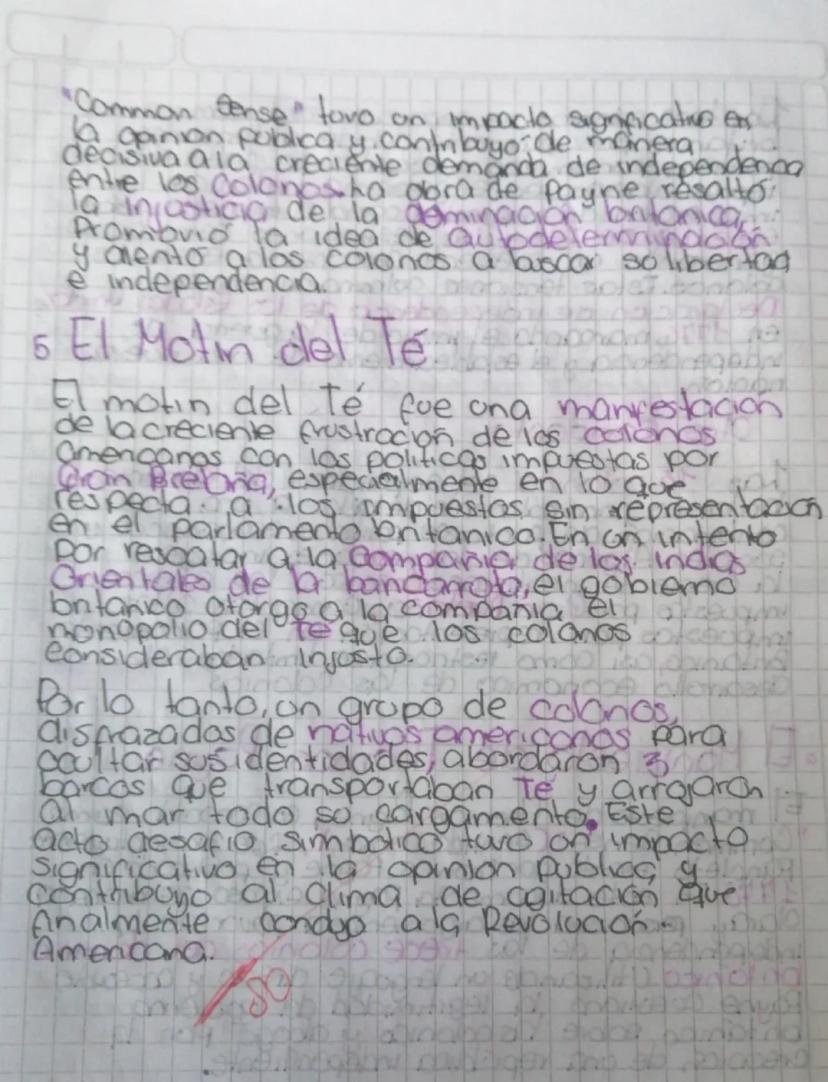 "Common Sense" tuvo un impacto significativo en
la opinion publica y contribuyo de manera
decisiva a la creciente demanda de independencia
entre los colonos. La obra de Payne resaltó
la injusticia de la dominación britanica,
Promovió la idea de autodeterminación
y alento a los colonos a buscar su libertad
e independencia.
5 El Motin del Té
El motin del Té fue una manifestación
de la creciente frustracion de los colonos
americanos con las politicas impuestas por
Gran Bretaña, especialmente en lo que
respecta a los impuestos sin representacion
en el parlamento britanico. En un intento
por rescatar a la Compañia de las indias
Orientales de la bancarrota, el gobierno
britanico otorgo a la compañia el
monopolio del te que los colonos
consideraban injusto.
Por lo tanto, un grupo de colonos,
disfrazados de nativos americanos para
ocultar sus identidades, abordaron 3
barcos que transportaban Té y arrojaron
al mar todo su cargamento. Este
acto desafio simbolico tuvo un impacto
significativo en la opinion publica y
contribuyo al clima de agitación que
finalmente condujo a la Revolución
Americana.
80